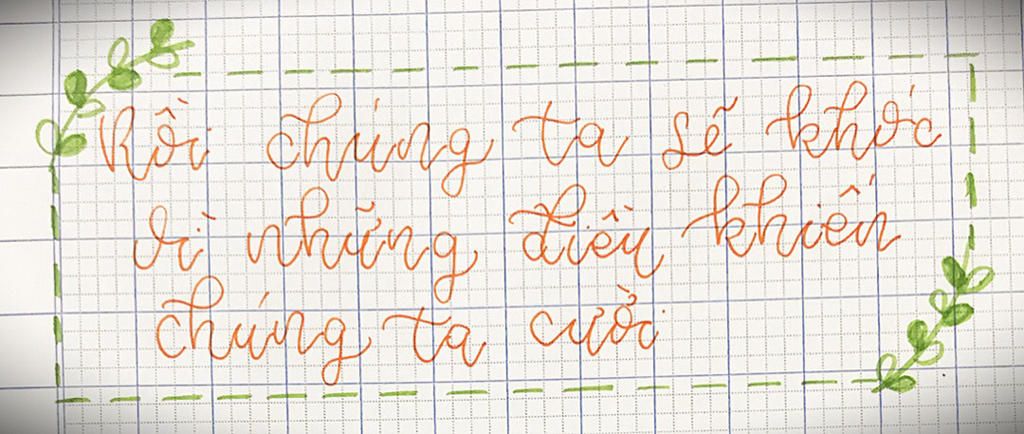 Rồi chúng ta sẽ khóc
vì những điều khiến
chúng ta cười